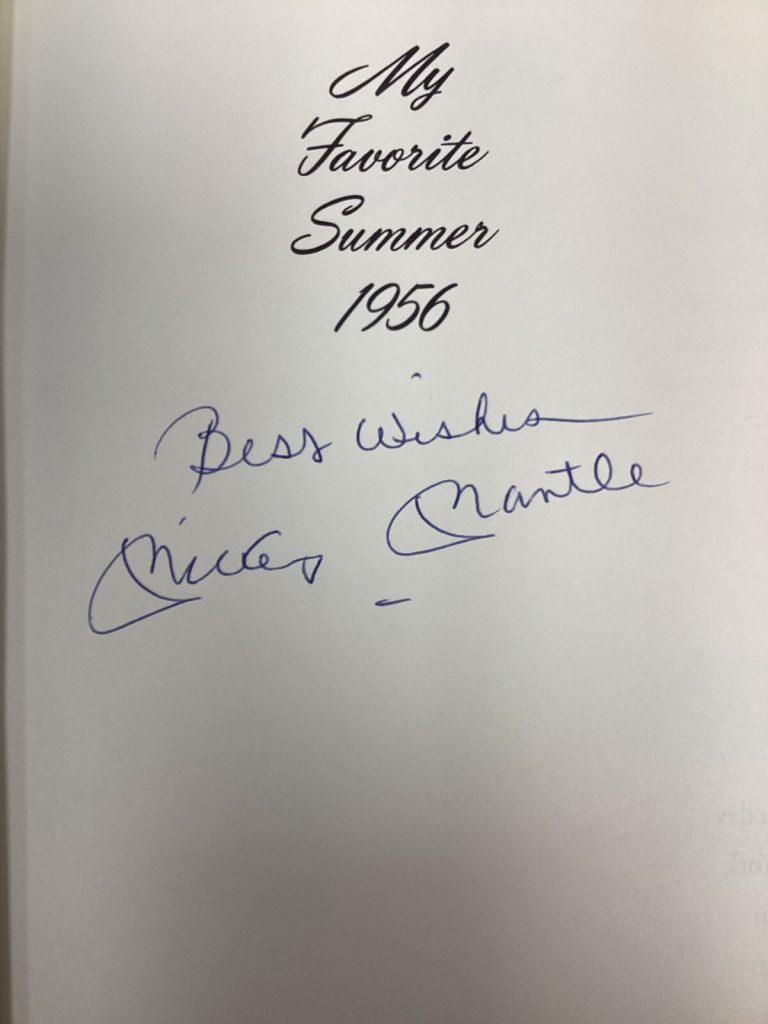 My
Favorite
Summer
1956
Best Wishes
Mickey Mantle